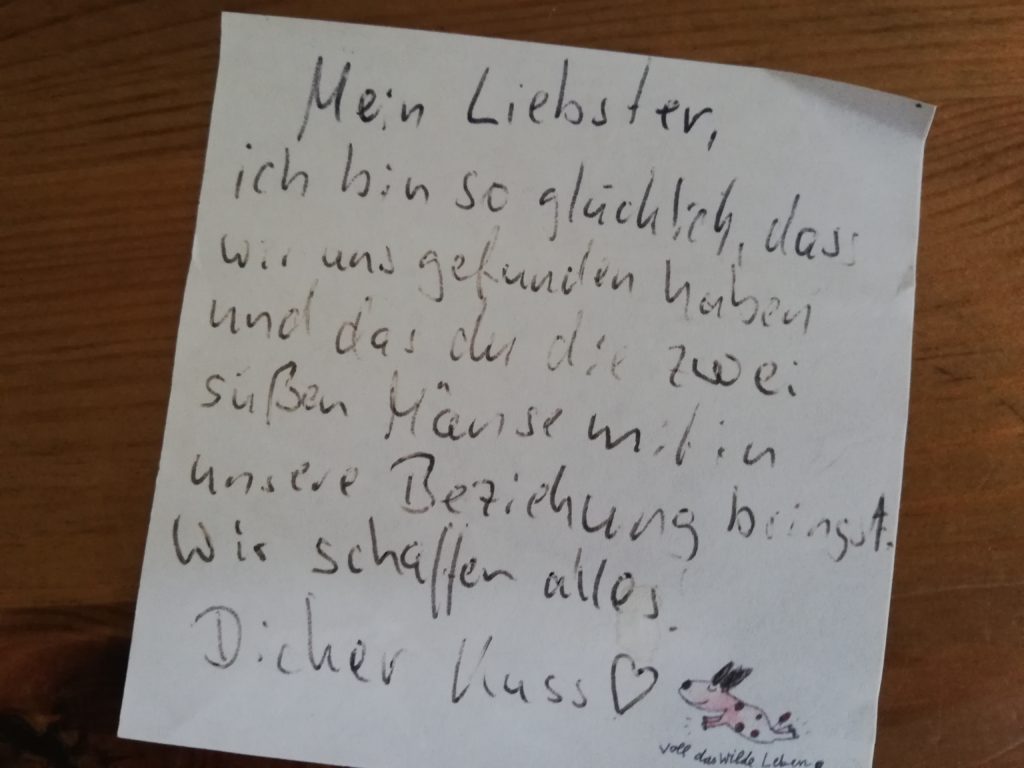 Mein Liebster,
ich bin so glücklich, dass
wir uns gefunden haben
und das du die zwei
süßen Mäuse mit in
unsere Beziehung bringst.
Wir schaffen alles!
Dicker Kuss ♡
voll das wilde Leben.